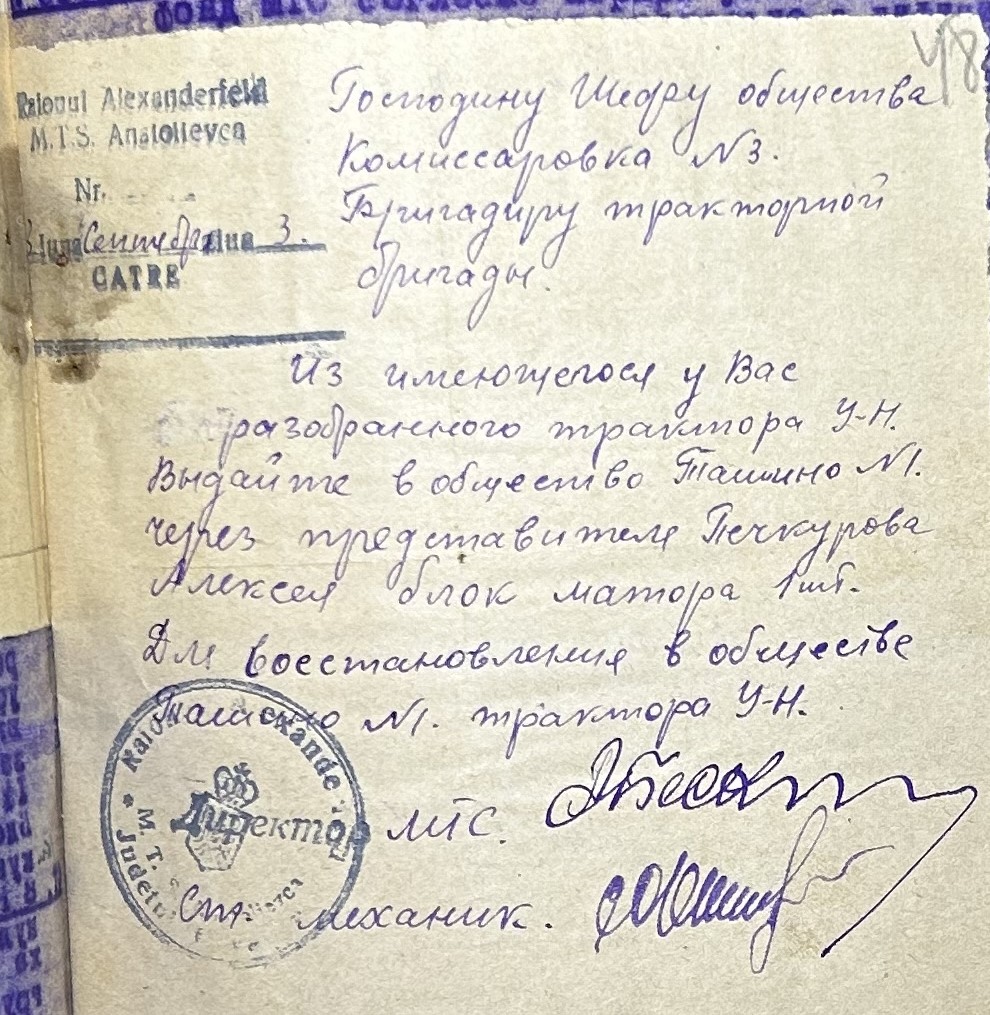 фонд МТС согласно
48
Raionul Alexanderfeld
M.T.S. Anatolievca
Nr.
Luna Сентябр ziua 3.
CATRE
Господину Шефу общества
Комиссаровка N3.
Бригадиру тракторной
бригады.
Из имеющегося у Вас
разобранного трактора У-Н.
Выдайте в общество Ташино N1.
через представителя Печкурова
Алексея блок матора 1 шт.
Для восстановления в обществе
Ташино N1. трактора У-Н.
Директор МТС.
Ст. механик.
Raio
M. T.
Judetu